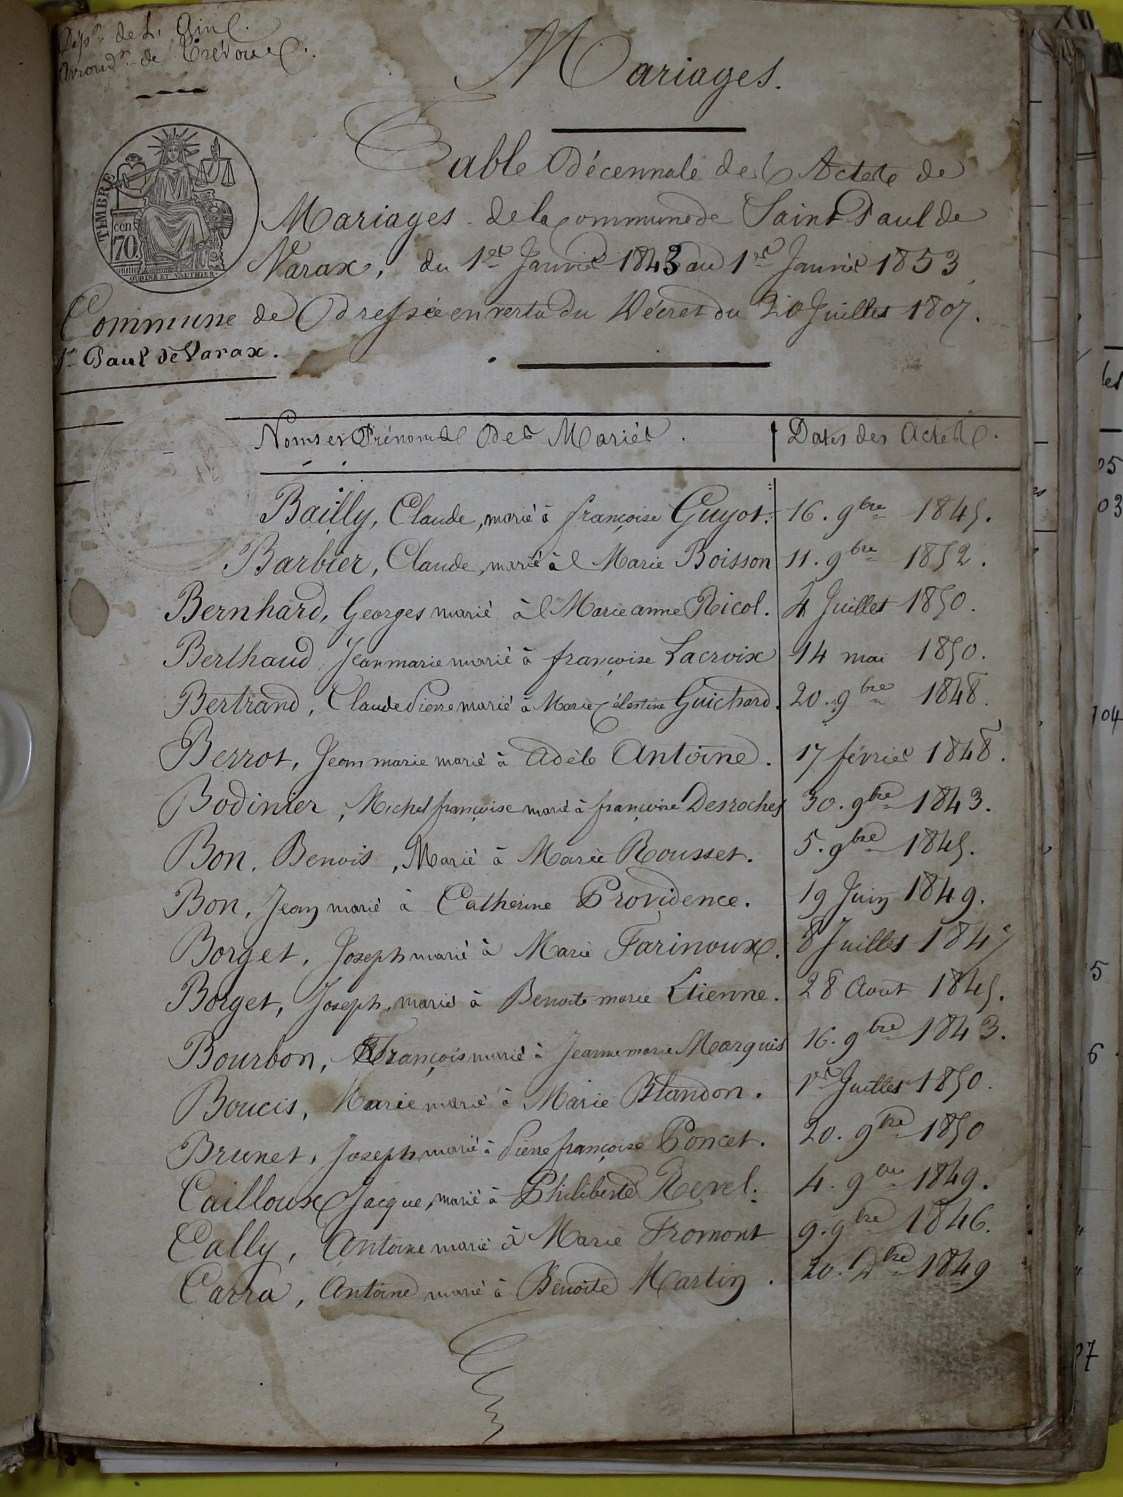 Dépt de L'Ain.
Arrondt de Trévoux.
Mariages.
TIMBRE
cen.
70.
Table Décennale des Actes de
Mariages de la commune de Saint Paul de
Varax, du 1er Janvier 1843 au 1er Janvier 1853
Commune de
Dressée en vertu du Décret du 20 Juillet 1807.
St Paul de Varax.
Noms et Prénoms des Mariés. Dates des Actes.
Bailly, Claude, marié à françoise Guyot. 16. 9bre 1845.
Barbier, Claude, marié à Marie Boisson 11. 9bre 1852.
Bernhard, Georges marié à Marie anne Ricol. 4 Juillet 1850.
Berthaud Jean marie marié à françoise Lacroix 14 mai 1850.
Bertrand, Claude Pierre marié à Marie Célestine Guichard. 20. 9bre 1848.
Berrot, Jean marie marié à Adèle Antoine. 17 février 1848.
Bodinier, Michel françoise marié à françoise Desroches 30. 9bre 1843.
Bon, Benois, Marié à Marie Rousset. 5. 9bre 1845.
Bon, Jean marié à Catherine Providence. 19 Juin 1849.
Borget, Joseph marié à Marie Farinoux. 8 Juillet 1847
Borget, Joseph, marié à Benoite marie Etienne. 28 Aout 1845.
Bourbon, François marié à Jeanne marie Marquis 16. 9bre 1843.
Boucis, Marie marié à Marie Blandon. 1er Juillet 1850.
Brunet, Joseph marié à Pierre françoise Poncet. 20. 9bre 1850
Cailloux Jacque, marié à Philiberte Revel. 4. 1849.
Cally, Antoine marié à Marie Fromont 9. 9bre 1846.
Carra, Antoine marié à Benoite Martin. 20. 1849